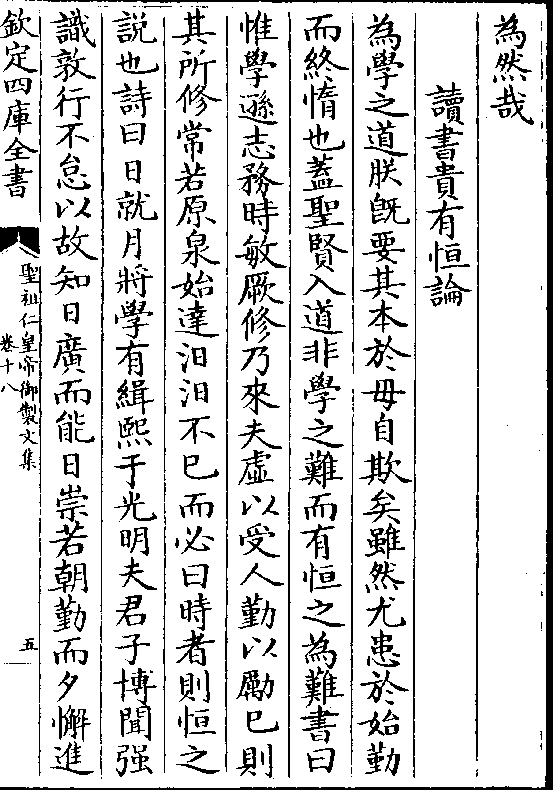 為然哉
讀書貴有恒論
為學之道朕旣要其本於毋自欺矣雖然尤患於始勤
而終惰也蓋聖賢入道非學之難而有恒之為難書曰
惟學遜志務時敏厥修乃來夫虛以受人勤以勵已則
其所修常若原泉始達汩汩不已而必曰時者則恒之
説也詩曰日就月將學有緝熙于光明夫君子博聞强
識敦行不怠以故知日廣而能日崇若朝勤而夕懈進
欽定四庫全書
聖祖仁皇帝御製文集
卷十八
五